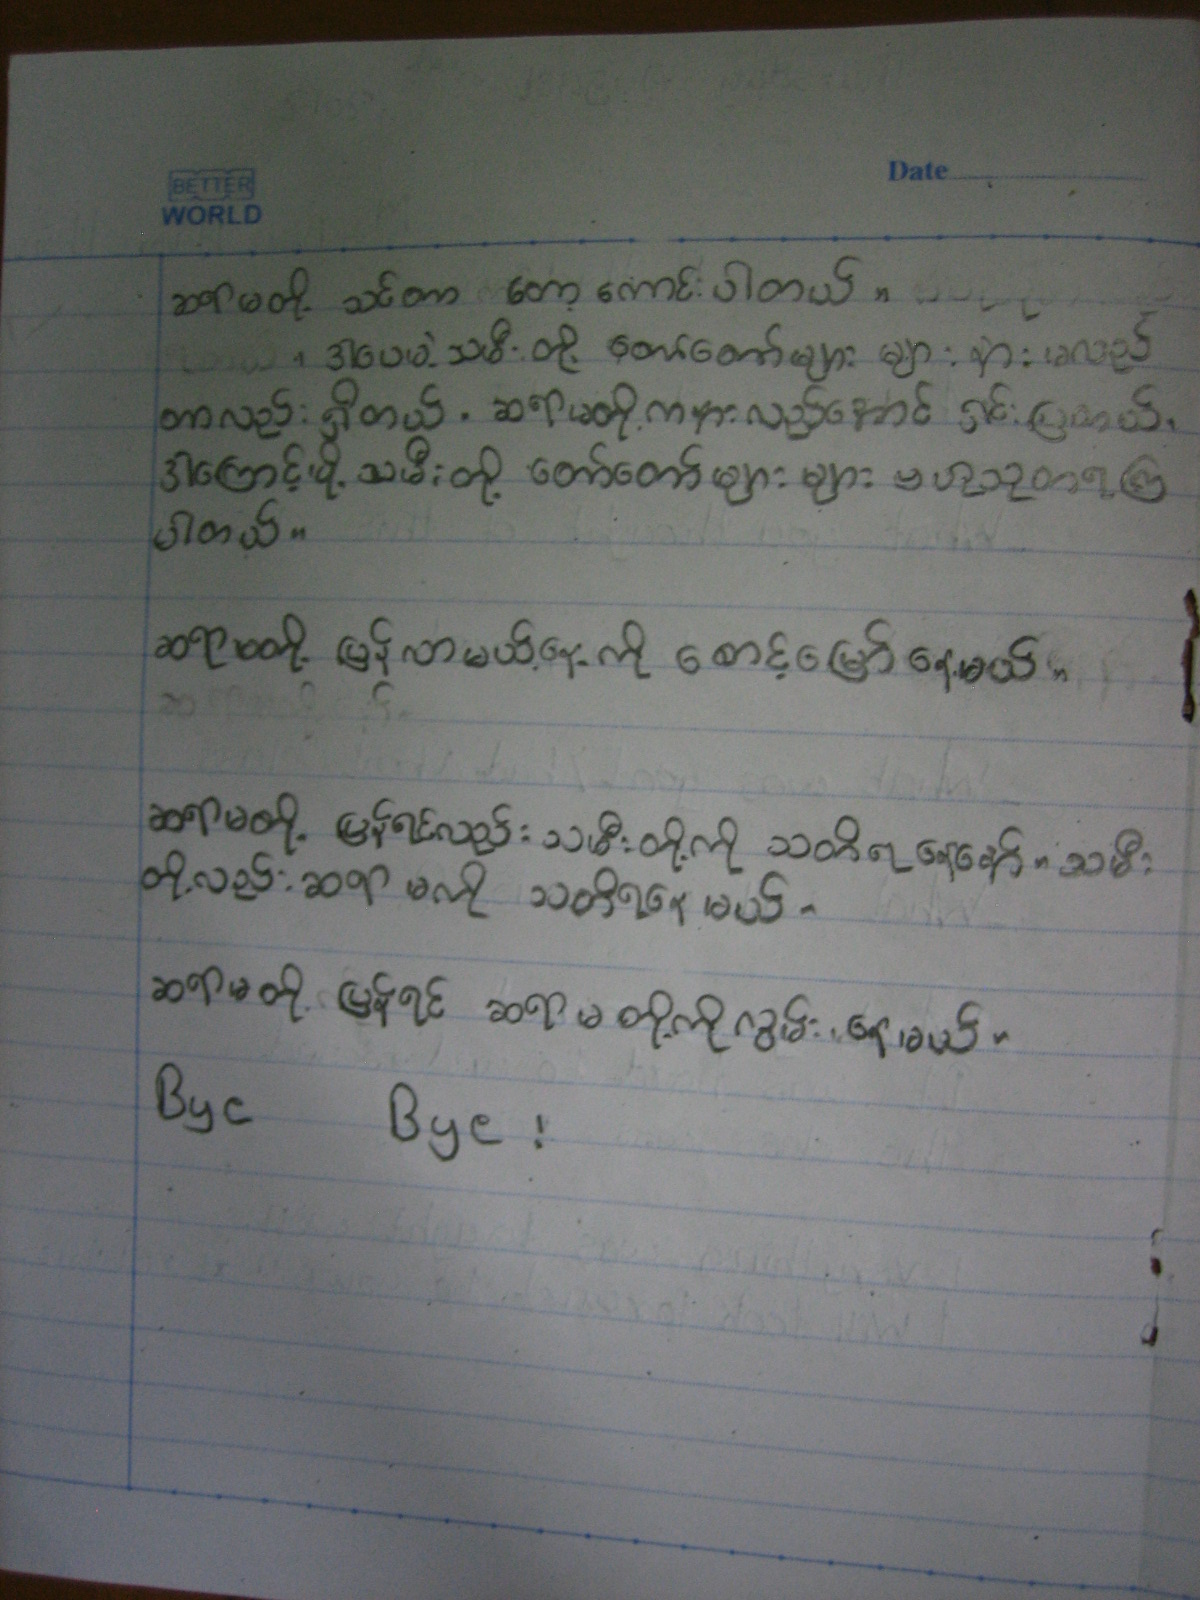 BETTER
WORLD
Date
ဆရာမတို့ သင်တာ တော့ ကောင်းပါတယ်။
ဒါပေမဲ့ သမီးတို့ တော်တော်များများ နားမလည်
တာလည်းရှိတယ်။ ဆရာမတို့ကနားလည်အောင် ရှင်းပြတယ်။
ဒါကြောင့်မို့ သမီးတို့ တော်တော်များများ ဗဟုသုတရကြ
ပါတယ်။
ဆရာမတို့ ပြန်လာမယ့်နေ့ကို စောင့်မျှော်နေမယ်။
ဆရာမတို့ ပြန်ရင်လည်း သမီးတို့ကို သတိရနေနော်။ သမီး
တို့လည်း ဆရာမကို သတိရနေမယ်။
ဆရာမတို့ ပြန်ရင် ဆရာမတို့ကိုလွမ်းနေမယ်။
Bye Bye !